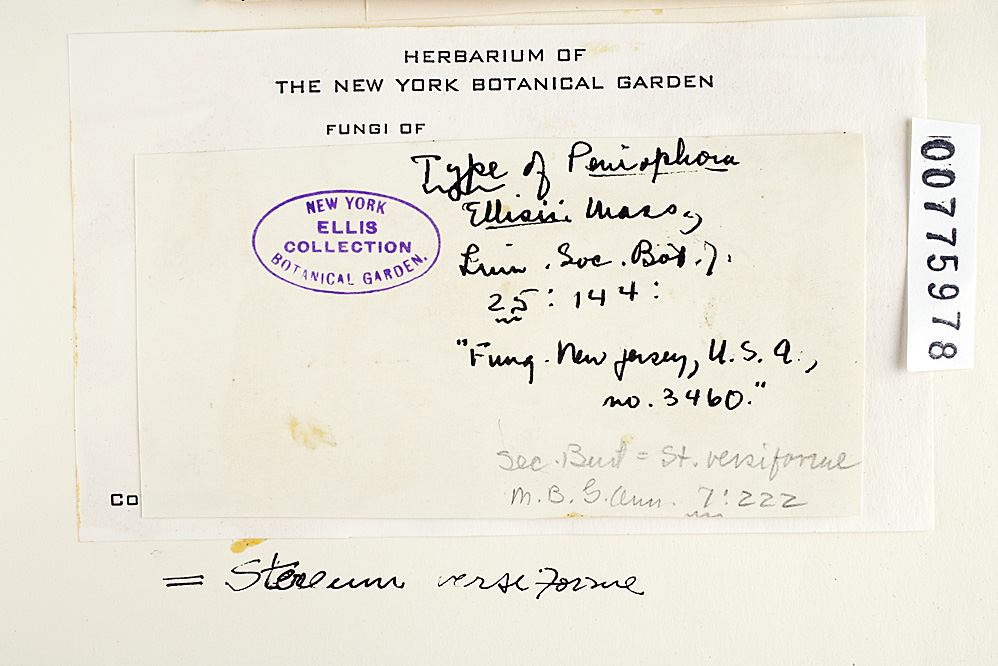 HERBARIUM OF
THE NEW YORK BOTANICAL GARDEN
FUNGI OF
Type of Peniophora
Ellisii Mass,
Linn. Soc. Bot. J.
25: 144:
"Fung. New Jersey, U.S.A.,
no. 3460."
NEW YORK
ELLIS
COLLECTION
BOTANICAL GARDEN.
sec. Burt = St. versiforme
M.B.G. Ann. 7:222
Co
= Stereum versiforme
00775978